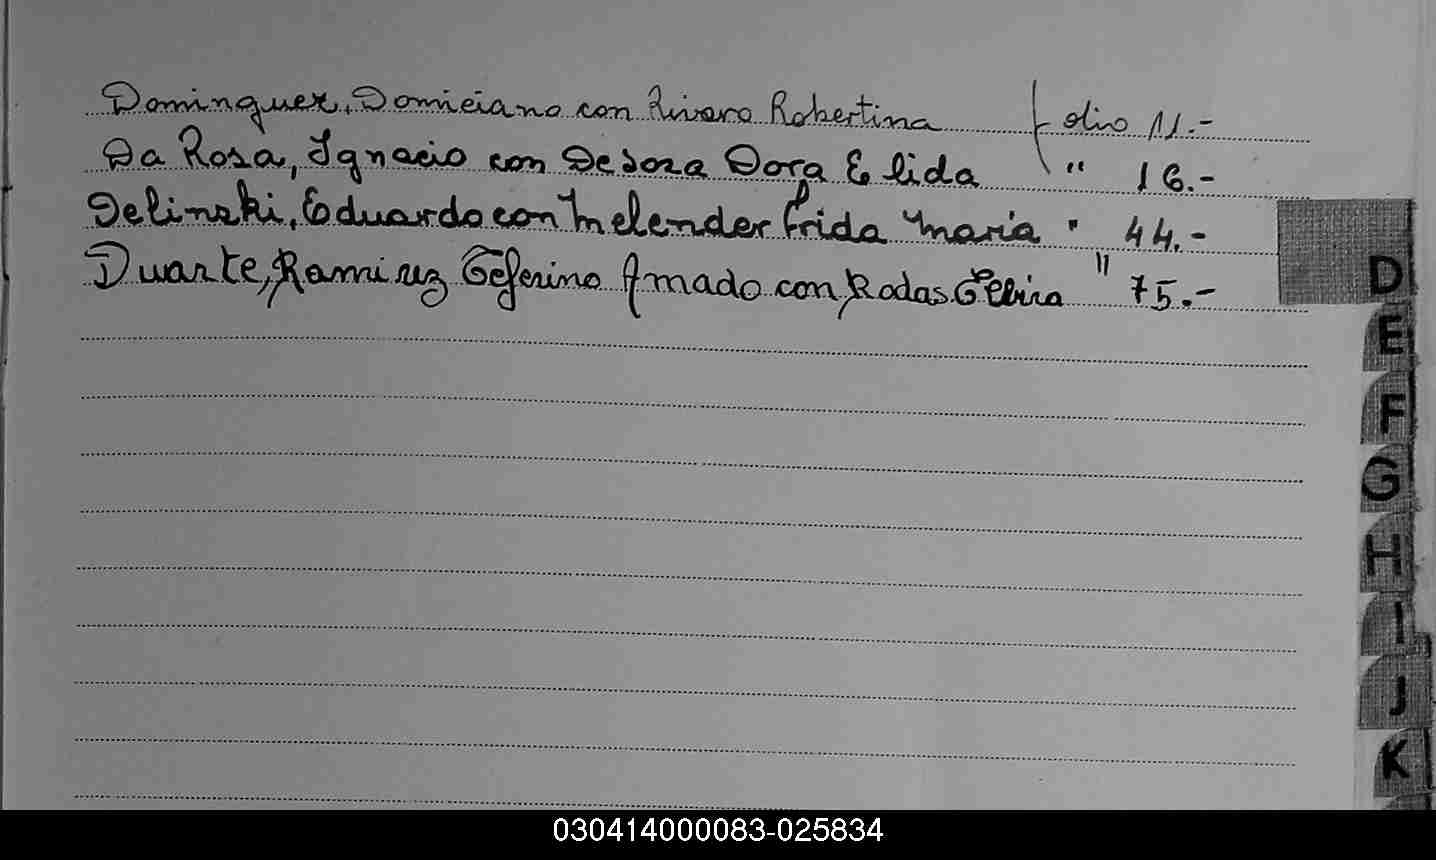 Dominguez, Domiciano con Rivero Robertina folio 11.-
Da Rosa, Ignacio con De Soza Dora Elida " 16.-
Delinski, Eduardo con Melender Frida Maria " 44.-
Duarte, Ramirez Ceferino Amado con Rodas Elvira " 75.-
D
E
F
G
H
I
J
K
030414000083-025834